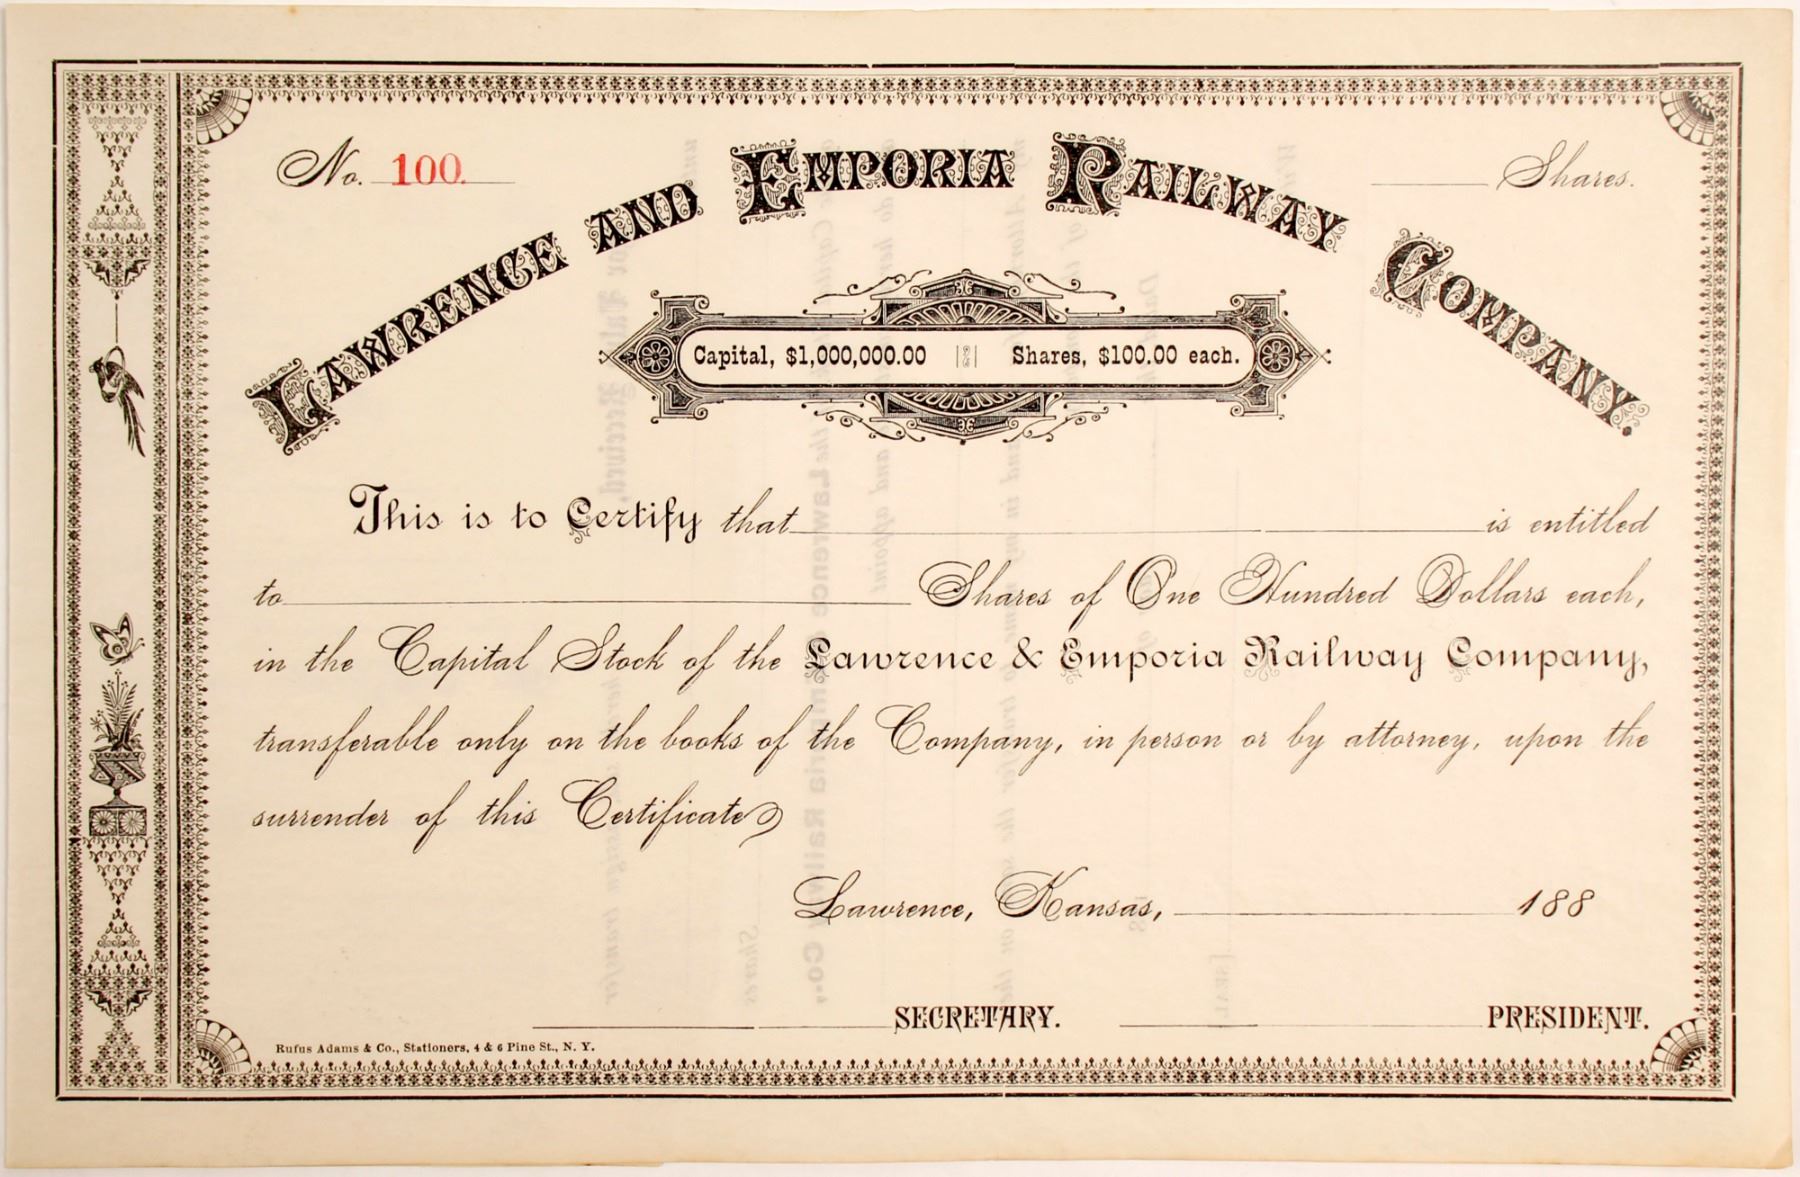 No. 100. Shares.
LAWRENCE AND EMPORIA RAILWAY COMPANY.
Capital, $1,000,000.00 Shares, $100.00 each.
This is to Certify that is entitled
to Shares of One Hundred Dollars each,
in the Capital Stock of the Lawrence & Emporia Railway Company,
transferable only on the books of the Company, in person or by attorney, upon the
surrender of this Certificate
Lawrence, Kansas, 188
SECRETARY. PRESIDENT.
Rufus Adams & Co., Stationers, 4 & 6 Pine St., N. Y.